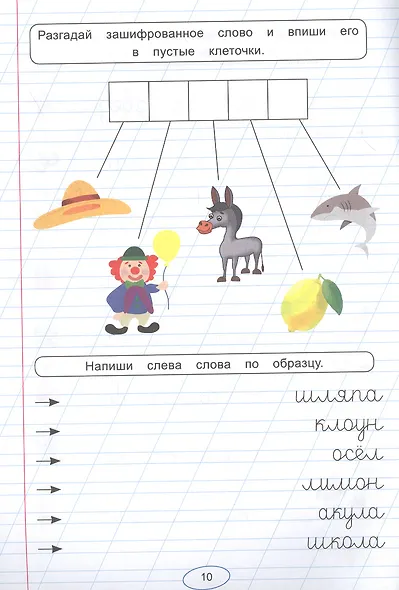 Разгадай зашифрованное слово и впиши его
в пустые клеточки.
Напиши слева слова по образцу.
шляпа
клоун
осёл
лимон
акула
школа
10